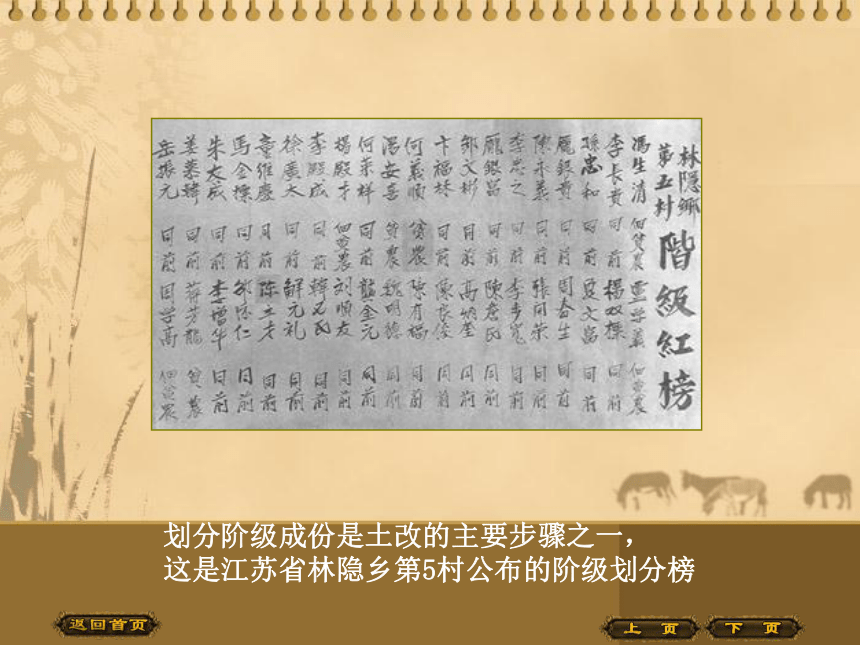 林隱鄉
第五村
階級紅榜
馮生清 佃貧農 学義 佃貧農
李長貴 同前 楊双標 同前
孫忠和 同前 夏文富 同前
龎銀貴 同前 周春生 同前
陳永義 同前 張同荣 同前
李忠之 同前 李步寬 同前
龎銀富 同前 陳詹氏 同前
鄒文彬 同前 高炳奎 同前
卞福林 同前 陳良俊 同前
何義順 貧農 陳有福 同前
湯安喜 貧農 魏明德 同前
何萊祥 同前 金元 同前
楊殿才 佃貧農 刘順友 同前
李殿成 同前 韓石氏 同前
徐廣大 同前 解元礼 同前
童維慶 同前 陈立才 同前
馬金標 同前 仁 同前
朱大成 同前 李增华 同前
姜慕韓 同前 蒋芳龍 貧農
岳振元 同前 周学高 佃貧農
划分阶级成份是土改的主要步骤之一，
这是江苏省林隐乡第5村公布的阶级划分榜
返回首页
上 页
下 页